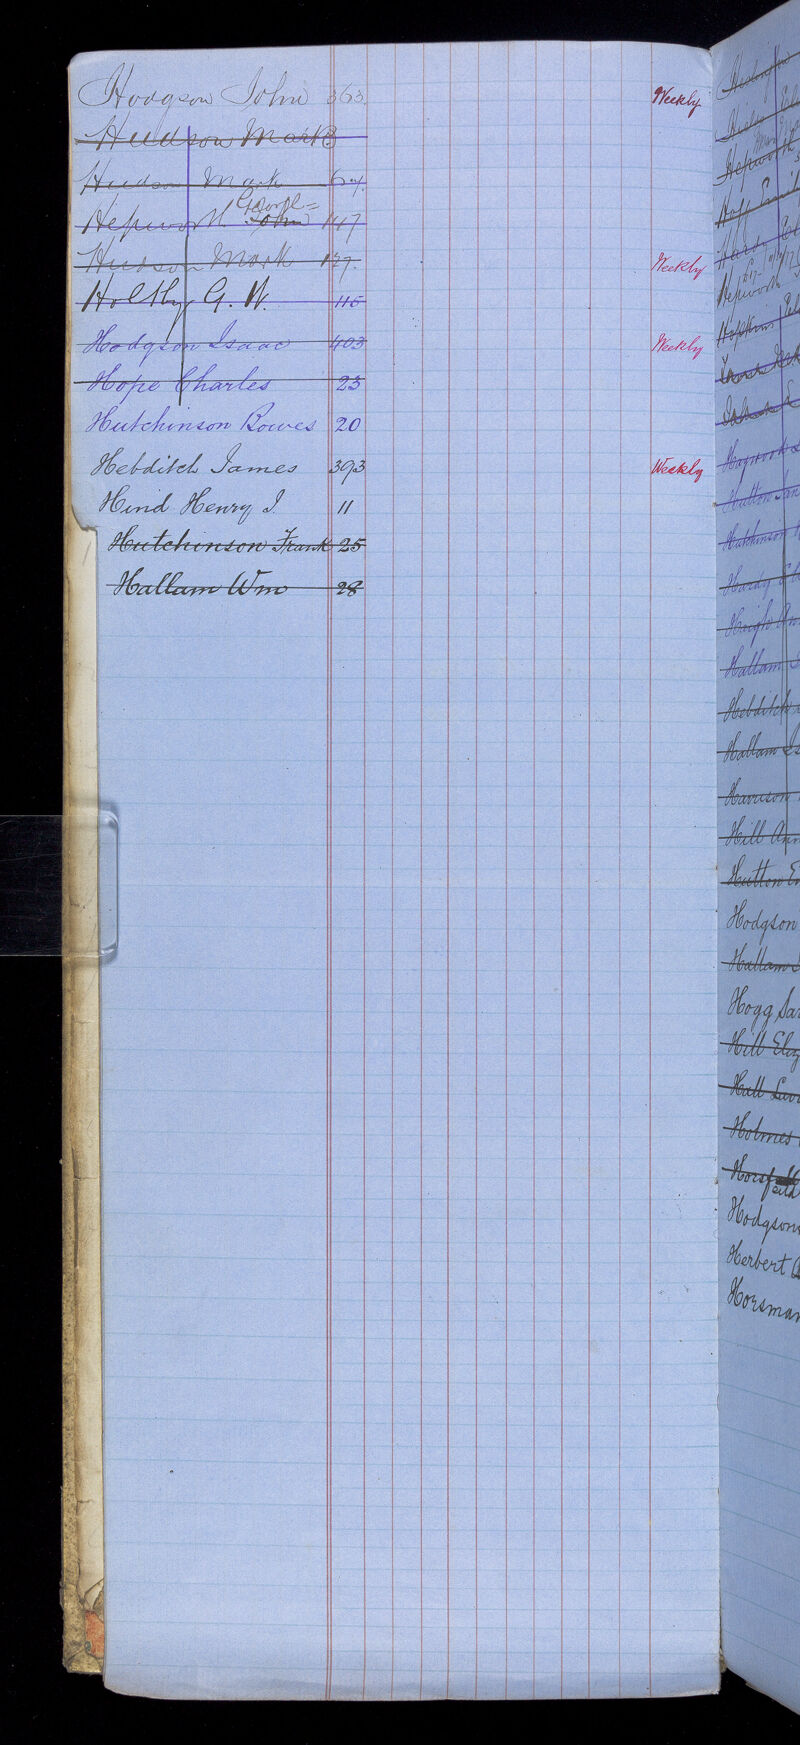 Hodgson John 363 Weekly
Hudson Mark
Hudson Mark
George
Hepworth John 147
Hudson Mark 127 Weekly
Holtby G. W. 115
Hodgson Isaac 403 Weekly
Hope Charles 23
Hutchinson Bowes 20
Hebditch James 393 Weekly
Hind Henry J. 11
Hutchinson Frank 25
Hallam Wm 28
Hepworth
Hepworth
Hopkins
Haywood
Hutton
Hutchinson
Hardy
Haigh
Hallam
Hebditch
Hallam
Harrison
Hill
Hutton
Hodgson
Hallam
Hogg
Hill
Hall
Holmes
Hodgson
Herbert
Horsman